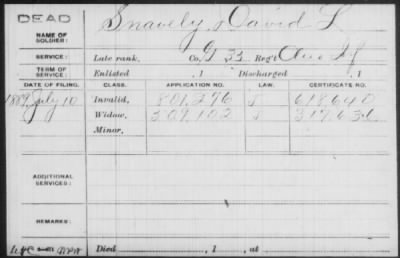 DEAD
NAME OF SOLDIER: Snavely, David L
SERVICE: Late rank, Co. G 33 Reg't Ohio Inf
TERM OF SERVICE: Enlisted , 1 Discharged , 1
DATE OF FILING. CLASS. APPLICATION NO. LAW. CERTIFICATE NO.
1889, July 10 Invalid, 801,276 618690
Widow, 809,102
Minor,
ADDITIONAL SERVICES:
REMARKS:
Died , 1 , at